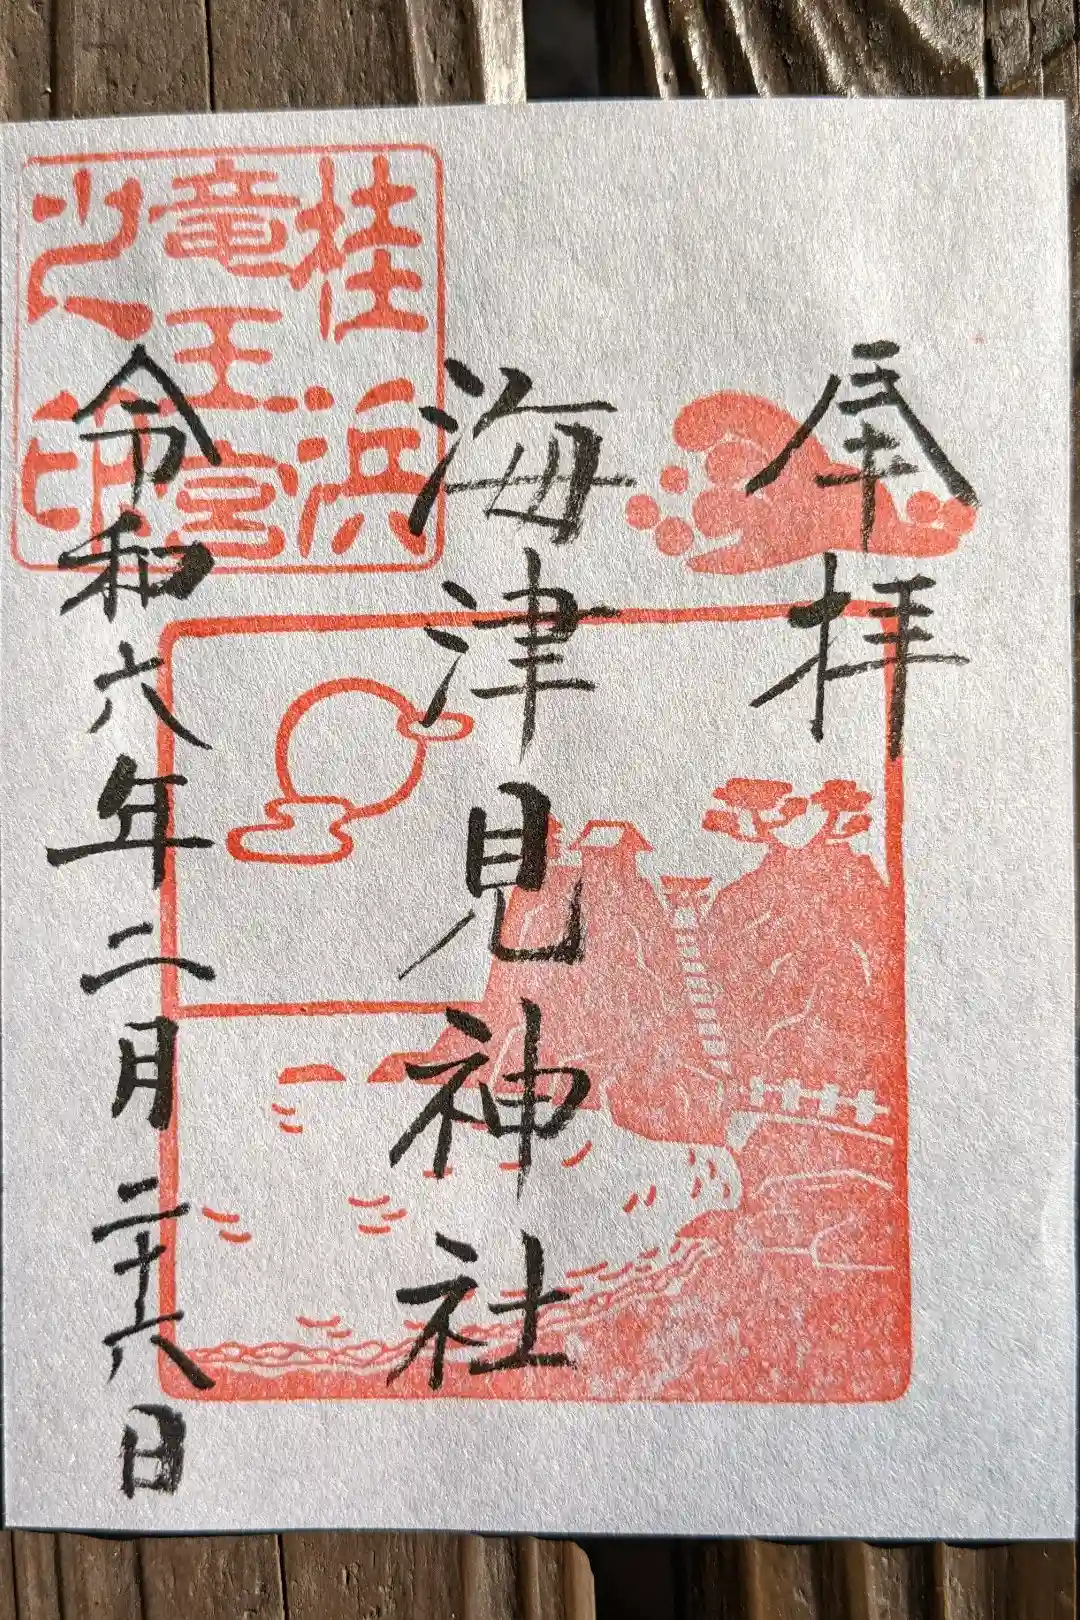 奉拝
海津見神社
令和六年二月二十六日
桂浜
竜王宮
之印